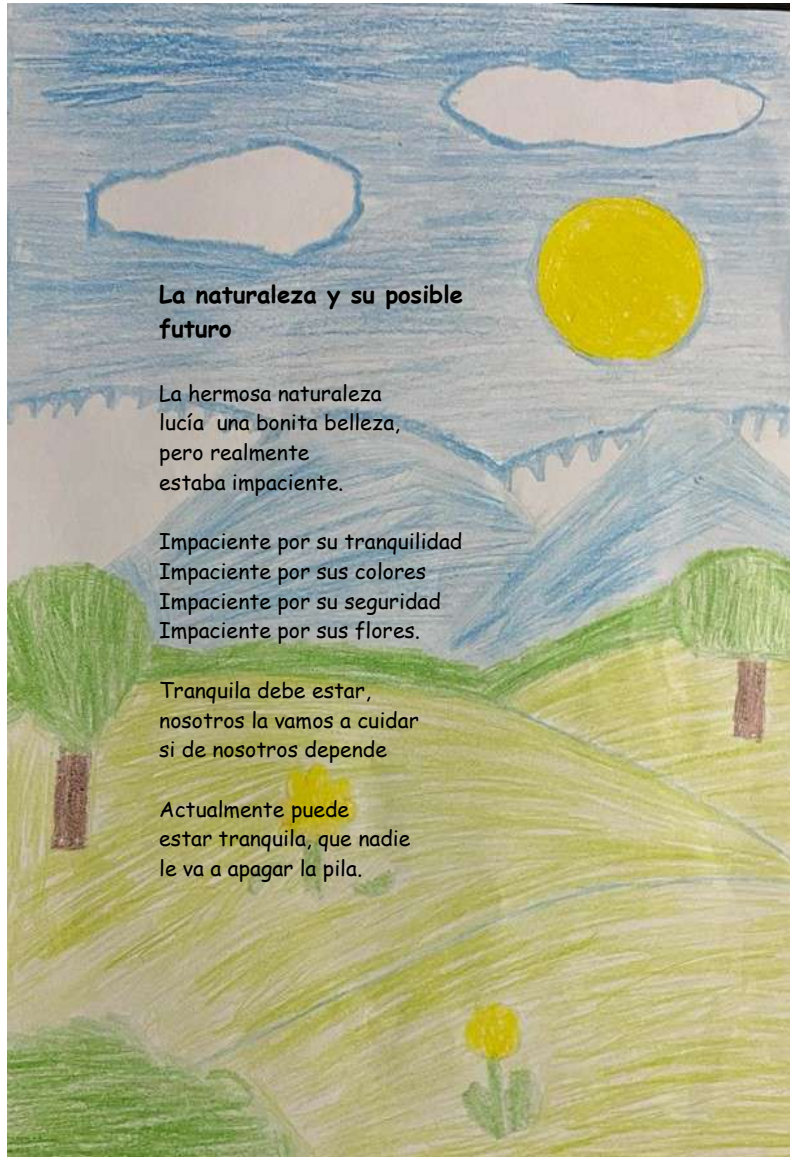 La naturaleza y su posible
futuro
La hermosa naturaleza
lucía una bonita belleza,
pero realmente
estaba impaciente.
Impaciente por su tranquilidad
Impaciente por sus colores
Impaciente por su seguridad
Impaciente por sus flores.
Tranquila debe estar,
nosotros la vamos a cuidar
si de nosotros depende
Actualmente puede
estar tranquila, que nadie
le va a apagar la pila.